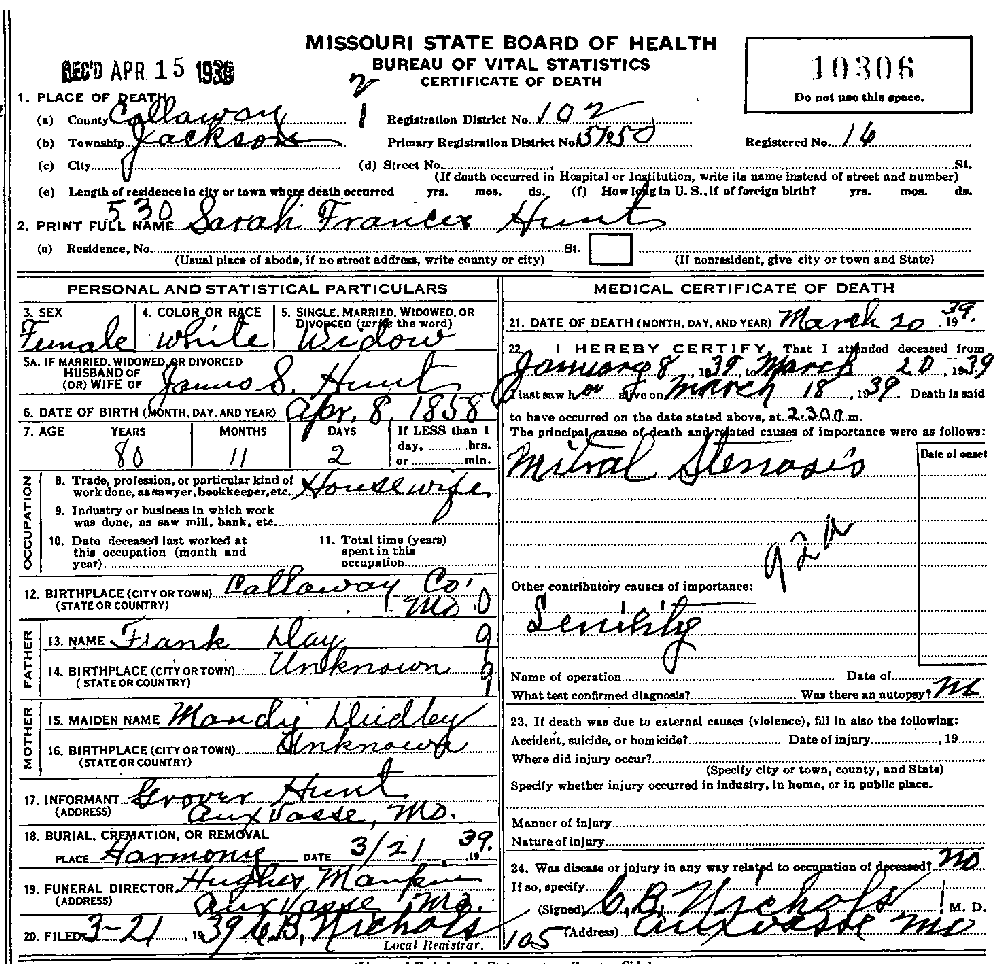 MISSOURI STATE BOARD OF HEALTH
BUREAU OF VITAL STATISTICS
CERTIFICATE OF DEATH
REC'D APR 15 1939
10306
Do not use this space.
2
1
1. PLACE OF DEATH
(a) County Callaway Registration District No. 102
(b) Township Jackson Primary Registration District No. 5150 Registered No. 16
(c) City (d) Street No. St.
(If death occurred in Hospital or Institution, write its name instead of street and number)
(e) Length of residence in city or town where death occurred yrs. mos. ds. (f) How long in U. S., if of foreign birth? yrs. mos. ds.
530
2. PRINT FULL NAME Sarah Frances Hunt
(a) Residence, No. St. (If nonresident, give city or town and State)
(Usual place of abode, if no street address, write county or city)
PERSONAL AND STATISTICAL PARTICULARS
3. SEX Female
4. COLOR OR RACE White
5. SINGLE, MARRIED, WIDOWED, OR DIVORCED (write the word) Widow
5A. IF MARRIED, WIDOWED, OR DIVORCED
HUSBAND OF
(OR) WIFE OF James S. Hunt
6. DATE OF BIRTH (MONTH, DAY, AND YEAR) Apr. 8, 1858
7. AGE YEARS MONTHS DAYS If LESS than 1
day, hrs.
or min.
80 11 2
OCCUPATION
8. Trade, profession, or particular kind of
work done, as sawyer, bookkeeper, etc. Housewife
9. Industry or business in which work
was done, as saw mill, bank, etc.
10. Date deceased last worked at
this occupation (month and
year)
11. Total time (years)
spent in this
occupation
12. BIRTHPLACE (CITY OR TOWN) Callaway Co.
(STATE OR COUNTRY) Mo. 0
FATHER
13. NAME Frank Day 9
14. BIRTHPLACE (CITY OR TOWN) Unknown 9
(STATE OR COUNTRY) 9
MOTHER
15. MAIDEN NAME Mandy Dudley
16. BIRTHPLACE (CITY OR TOWN) Unknown
(STATE OR COUNTRY)
17. INFORMANT Grover Hunt
(ADDRESS) Auxvasse, Mo.
18. BURIAL, CREMATION, OR REMOVAL
PLACE Harmony DATE 3/21 1939.
19. FUNERAL DIRECTOR Hughes
(ADDRESS) Auxvasse Mo.
20. FILED 3-21 1939 C.B. Nichols
Local Registrar.
MEDICAL CERTIFICATE OF DEATH
21. DATE OF DEATH (MONTH, DAY, AND YEAR) March 20 1939.
22. I HEREBY CERTIFY, That I attended deceased from
January 8, 1939 to March 20, 1939
I last saw her alive on March 18, 1939 Death is said
to have occurred on the date stated above, at 2:30 m.
The principal cause of death and related causes of importance were as follows:
Date of onset
Mitral Stenosis
92a
Other contributory causes of importance:
Senility
Name of operation Date of
What test confirmed diagnosis? Was there an autopsy? No
23. If death was due to external causes (violence), fill in also the following:
Accident, suicide, or homicide? Date of injury , 19
Where did injury occur?
(Specify city or town, county, and State)
Specify whether injury occurred in industry, in home, or in public place.
Manner of injury
Nature of injury
24. Was disease or injury in any way related to occupation of deceased? No
If so, specify
(Signed) C.B. Nichols M. D.
105 (Address) Auxvasse Mo